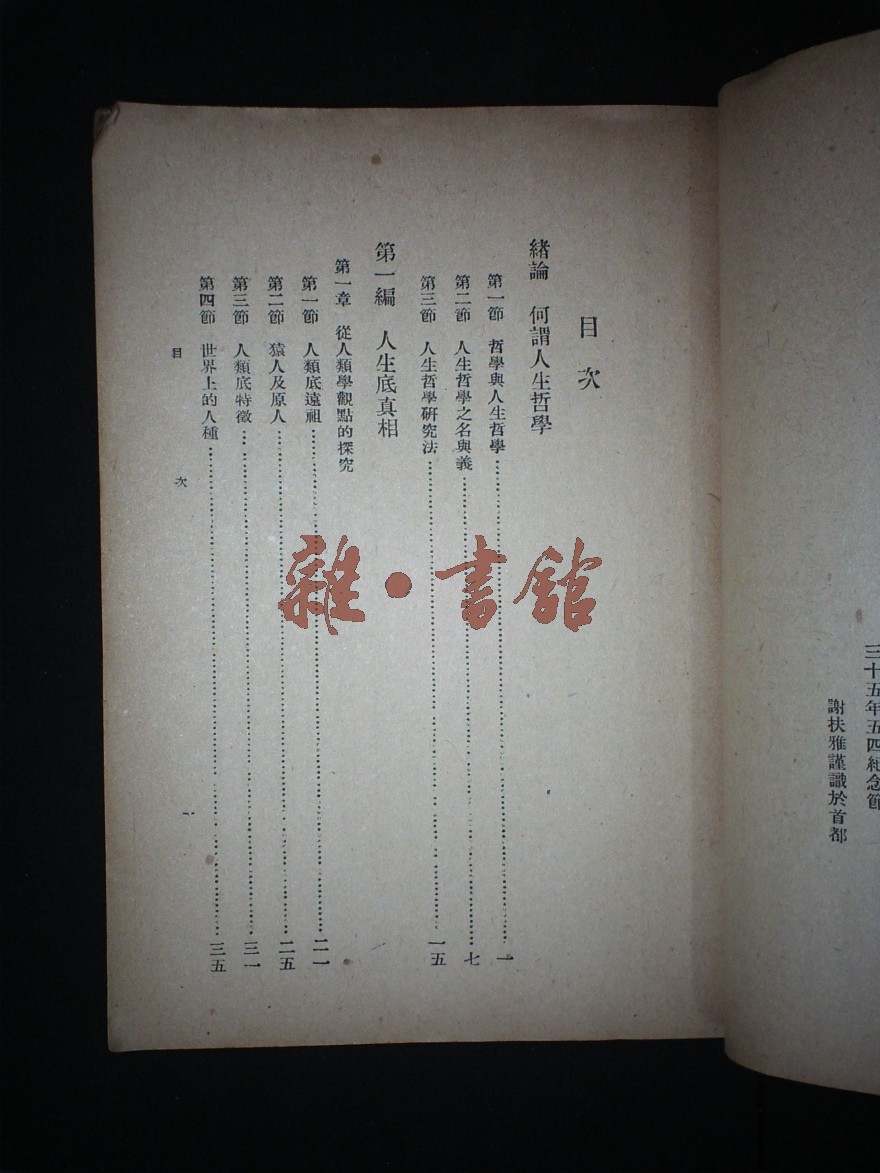 三十五年五四紀念節
謝扶雅謹識於首都
目次
緒論 何謂人生哲學
第一節 哲學與人生哲學……一
第二節 人生哲學之名與義……七
第三節 人生哲學研究法……一五
第一編 人生底真相
第一章 從人類學觀點的探究
第一節 人類底遠祖……二一
第二節 猿人及原人……二五
第三節 人類底特徵……三一
第四節 世界上的人種……三五
目 次 一
雜·書館